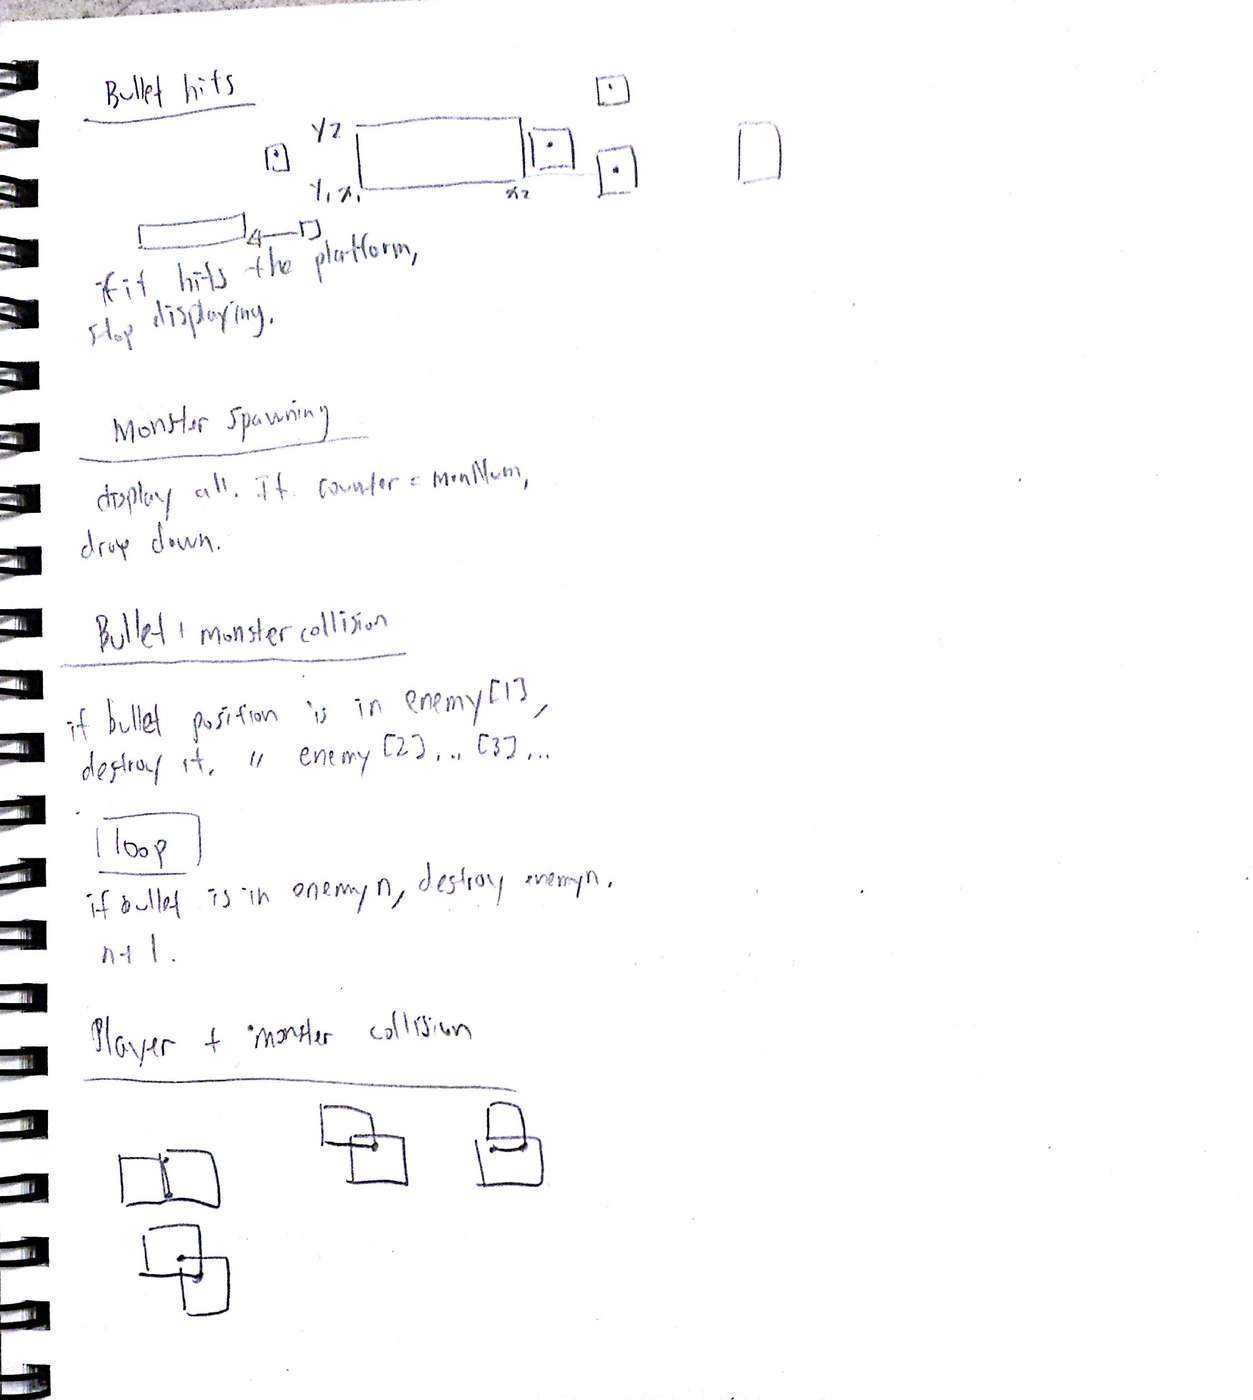 Bullet hits
Y2
Y1 X1
X2
if it hits the platform,
stop displaying.
Monster spawning
display all. If counter = monNum,
drop down.
Bullet + monster collision
if bullet position is in enemy[1],
destroy it. " enemy [2]... [3]...
loop
if bullet is in enemy n, destroy enemyn.
n+1.
Player + monster collision